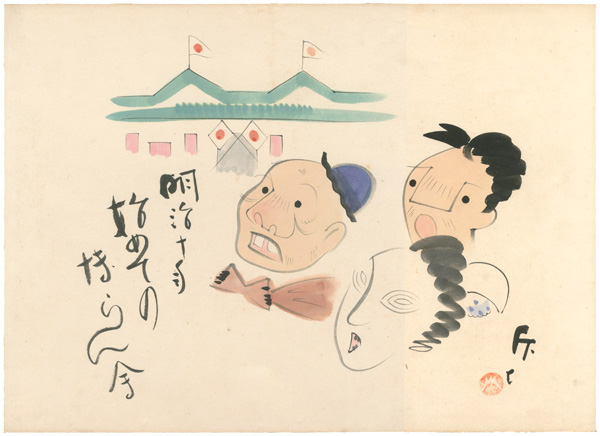 明治十年
始めての
博らん会